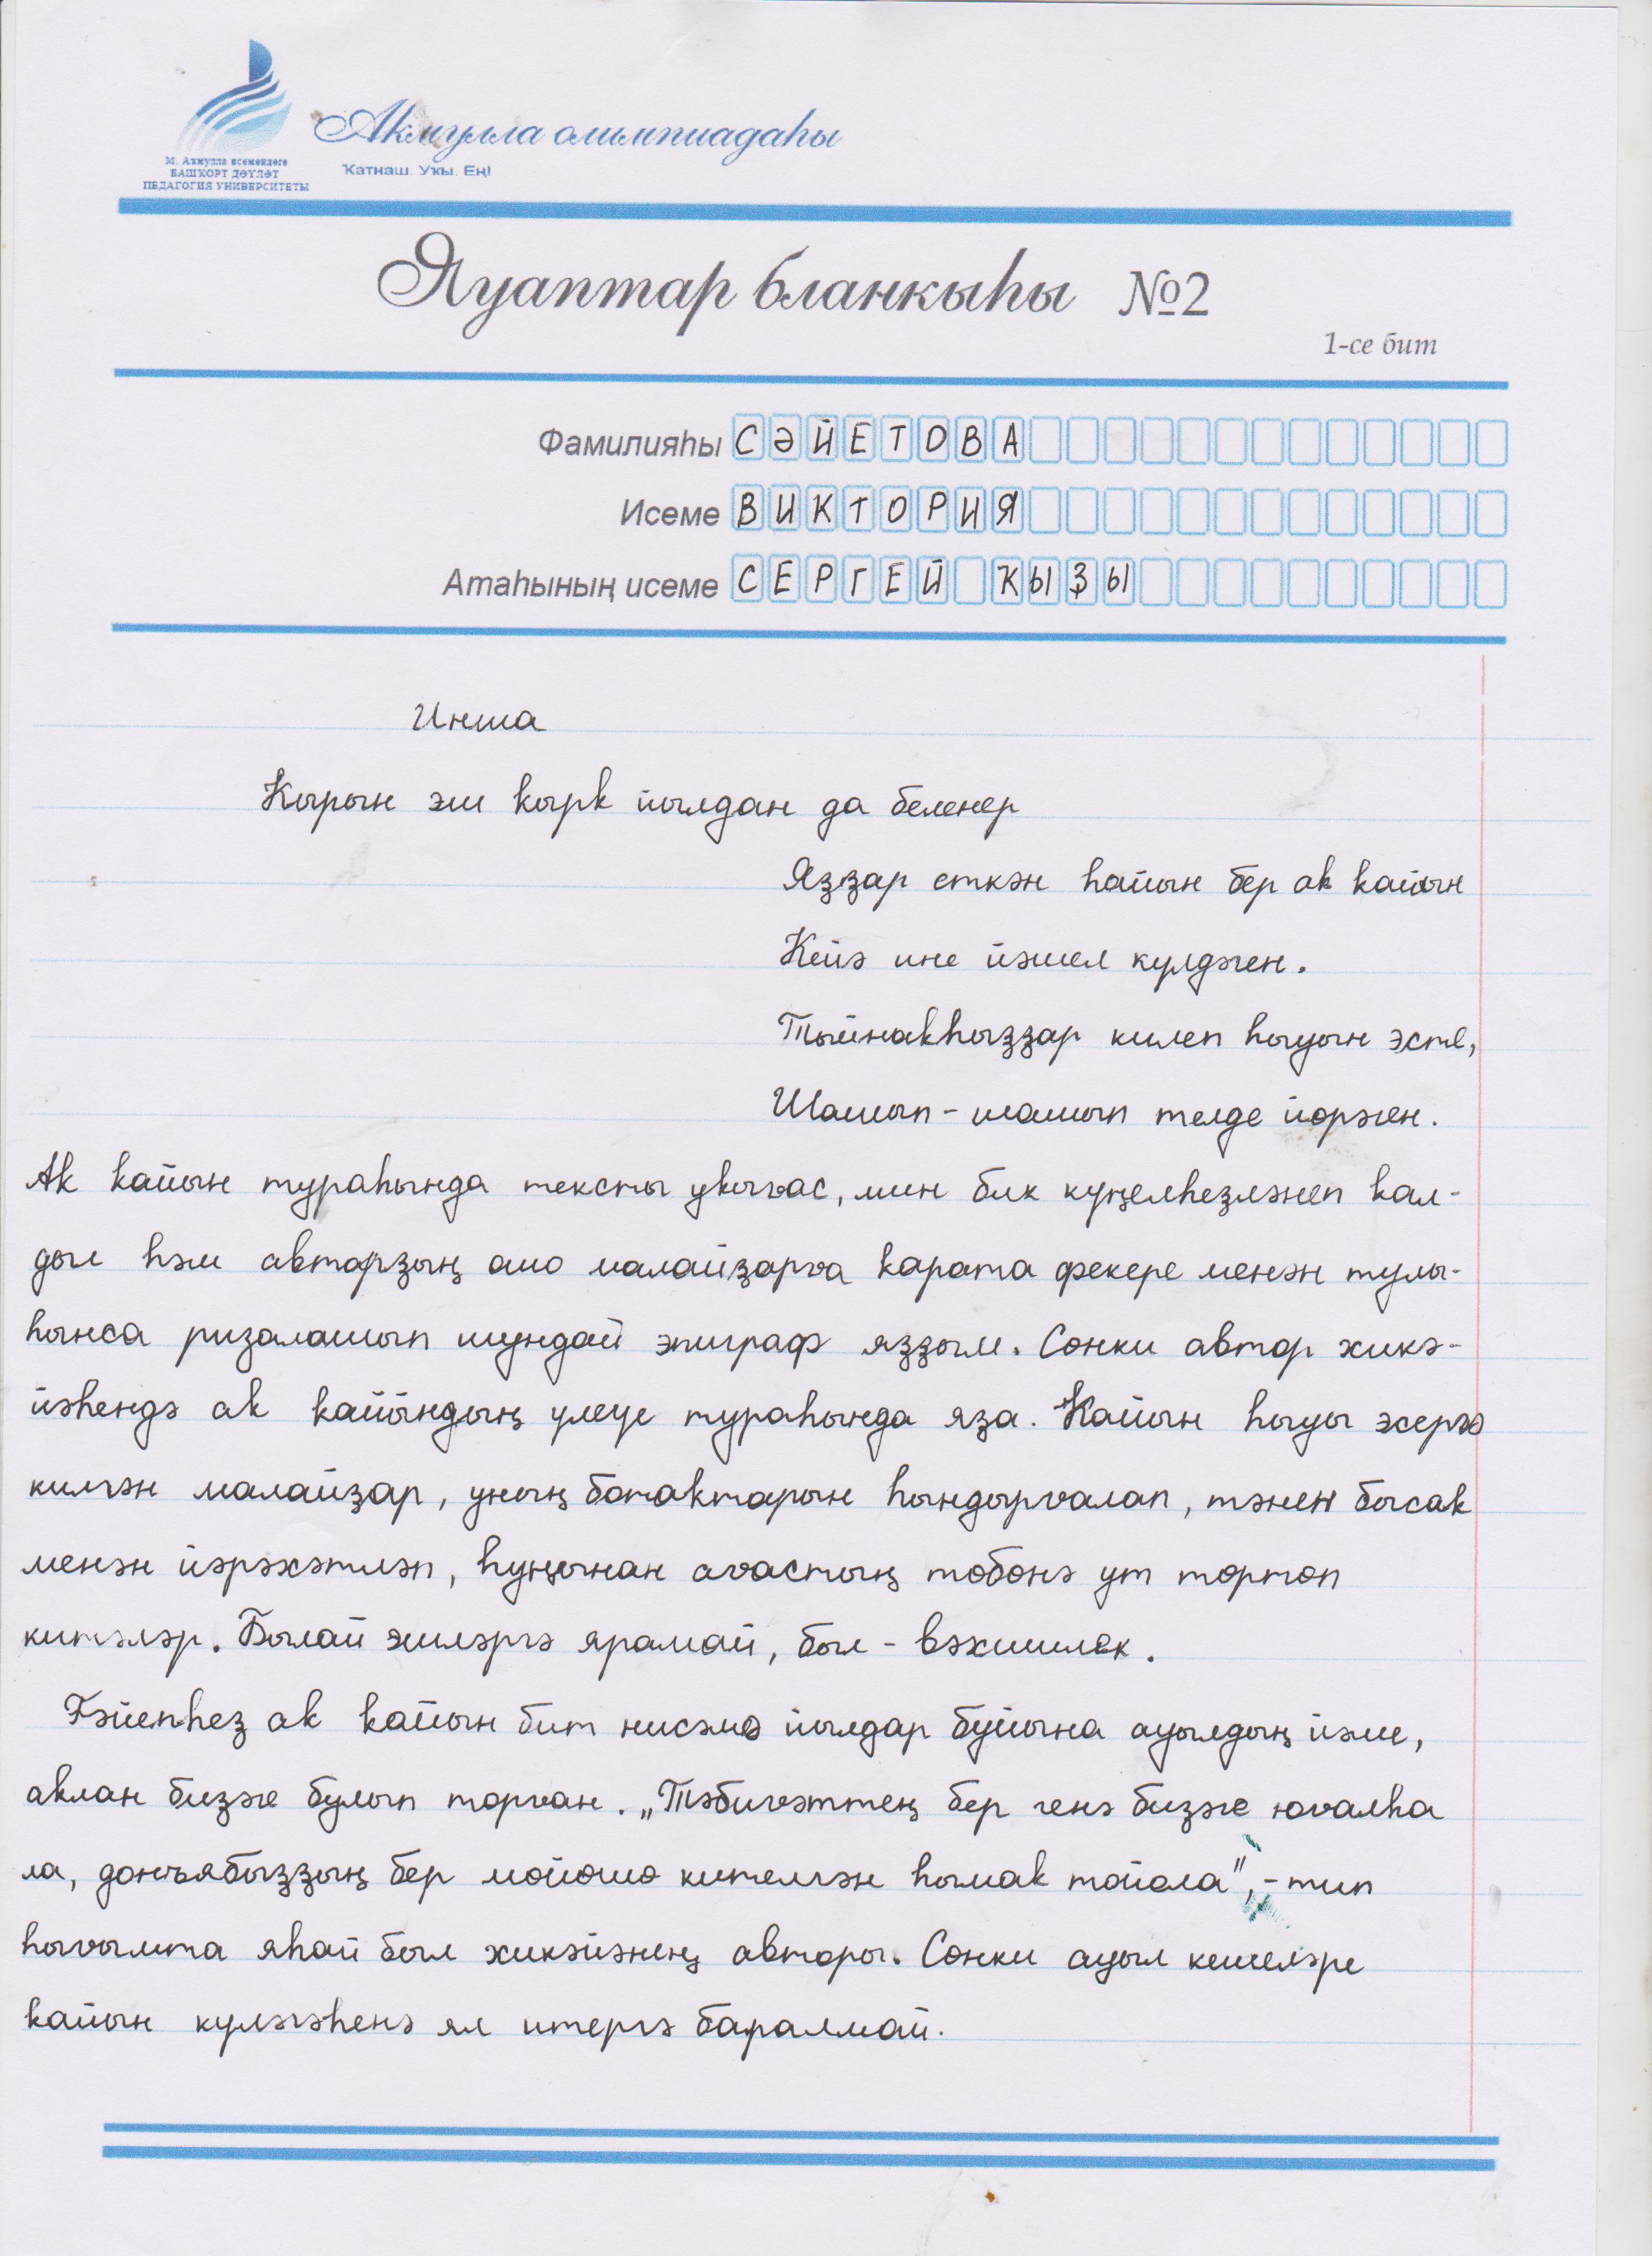 Акмулла олимпиадаһы
М. Аҡмулла исемендәге
БАШҠОРТ ДӘҮЛӘТ
ПЕДАГОГИЯ УНИВЕРСИТЕТЫ
Ҡатнаш. Уҡы. Ең!
Яуаптар бланкыһы №2
1-се бит
Фамилияһы СӘЙЕТОВА
Исеме ВИКТОРИЯ
Атаһының исеме СЕРГЕЙ ҠЫЗЫ
Инша
Ҡырын эш ҡырҡ йылдан да беленер
Яҙҙар еткән һайын бер аҡ ҡайын
Кейә ине йәшел күлдәген.
Тыйнаҡһыҙҙар килеп һыуын эсте,
Шашып-шашып телде йөрәген.
Аҡ ҡайын тураһында тексты уҡығас, мин бик күңелһеҙләнеп ҡал-
дым һәм авторҙың ошо малайҙарға ҡарата фекере менән тулы-
һынса ризалашып шундай эпиграф яҙҙым. Сөнки автор хикә-
йәһендә аҡ ҡайындың үлеүе тураһында яҙа. Ҡайын һыуы эсергә
килгән малайҙар, уның ботаҡтарын һындырғалап, тәнен бысаҡ
менән йәрәхәтләп, һуңынан ағастың төбөнә ут төртөп
китәләр. Былай эшләргә ярамай, был - вәхшилек.
Ғәйепһеҙ аҡ ҡайын бит нисәмә йылдар буйына ауылдың йәме,
аҡлан биҙәге булып торған. „Тәбиғәттең бер генә биҙәге юғалһа
ла, донъябыҙҙың бер мөйөшө кителгән һымаҡ тойола”, - тип
һығымта яһай был хикәйәнең авторы. Сөнки ауыл кешеләре
ҡайын күләгәһенә ял итергә бара алмай.